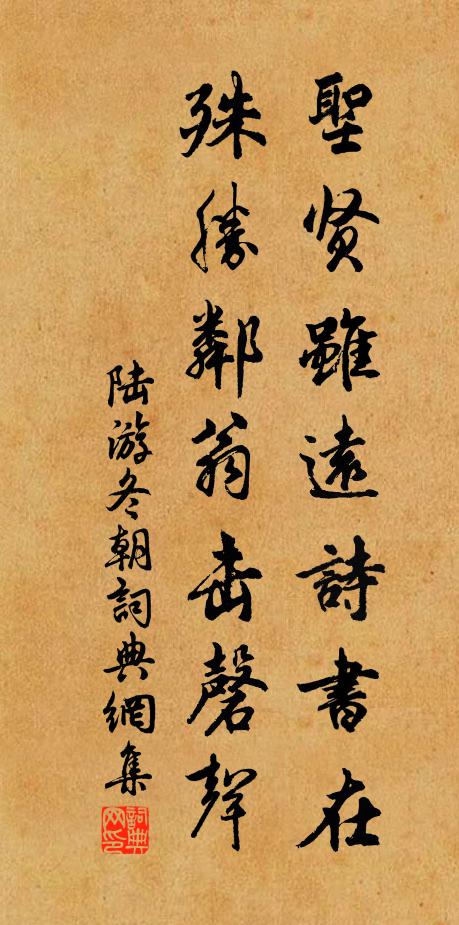 聖贤雖遠詩書在
殊勝鄰翁击磬聲
陆游冬朝詞典網集
詞典网印